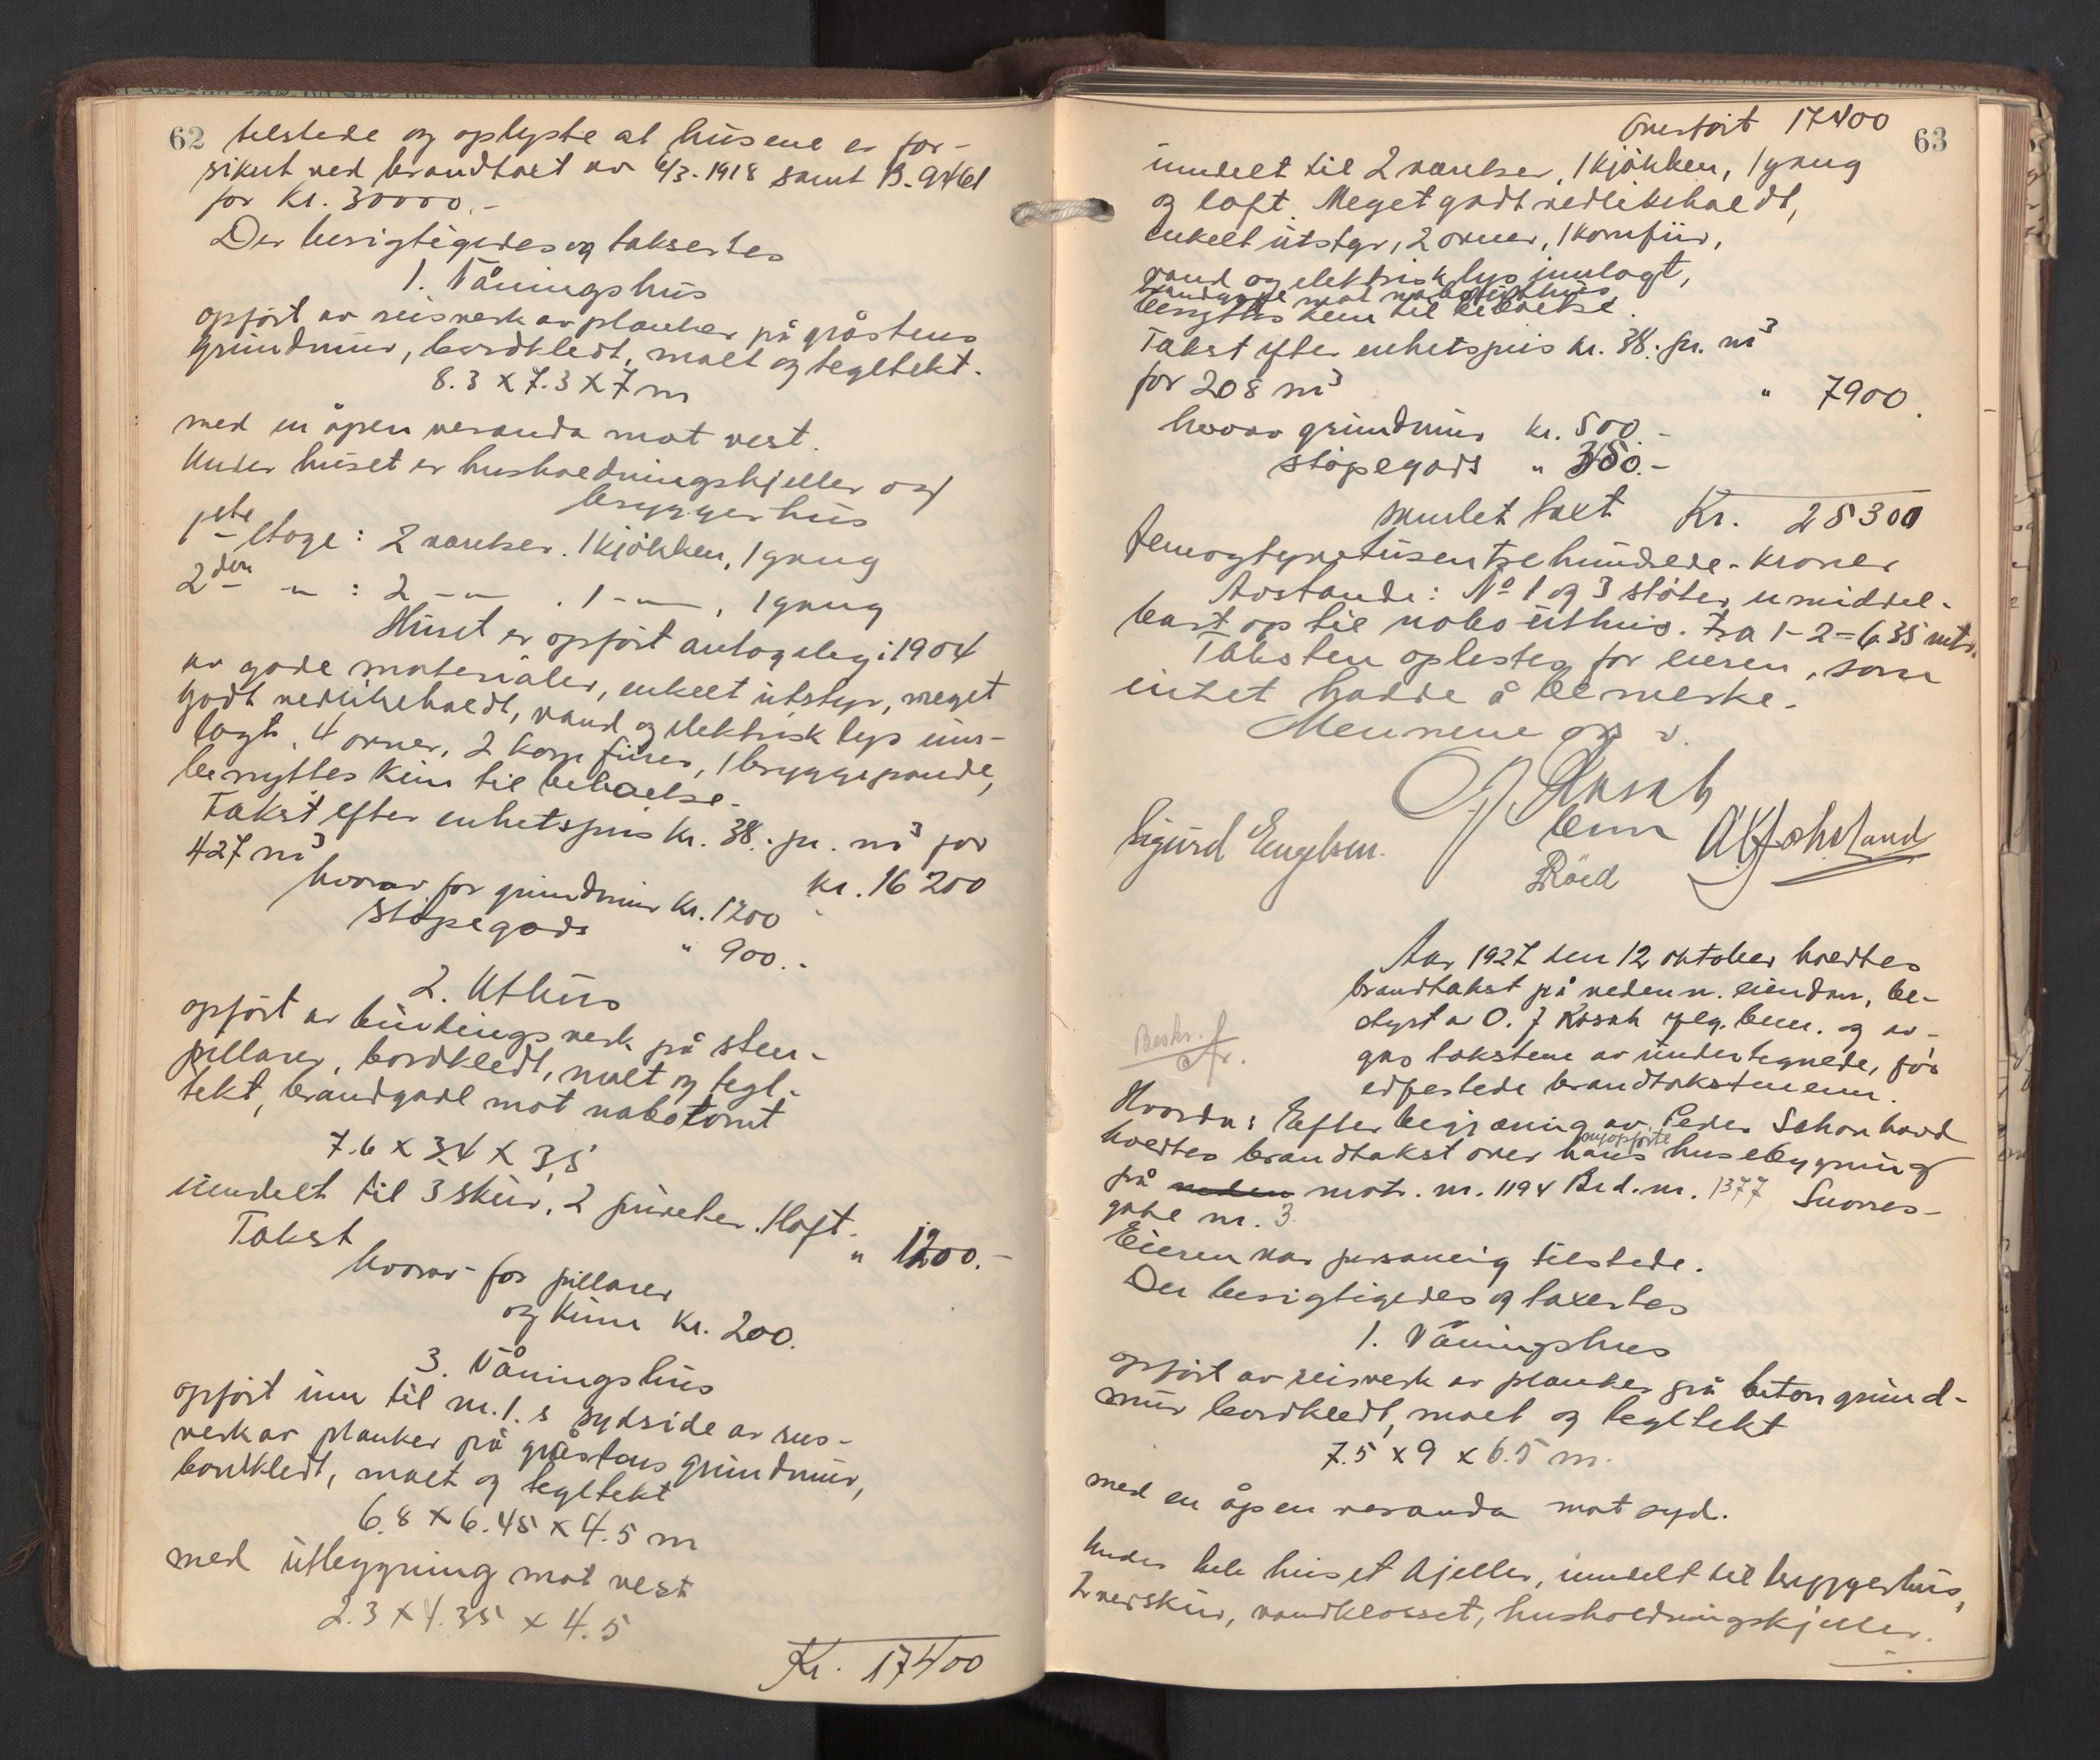 62
tilstede og oplyste at husene er for-
sikret ved brandtaxt av 6/3. 1918 samt B. 9461
for Kr. 30000.-
Der besigtigedes og taksertes
1. Våningshus
opført av reisverk av planker på gråstens
grundmur, bordkledt, malt og tegltekt.
8.3 x 7.3 x 7 m
med en åpen veranda mot vest.
Under huset er husholdningskjeller og
bryggerhus
1ste Etage: 2 værelser. 1 kjøkken, 1 gang
2den -"- : 2 -"- . 1 -"- , 1 gang
Huset er opført antagelig i 1904
av gode materialer, enkelt utstyr, meget
godt vedlikeholdt, vand og elektrisk lys inn-
lagt, 4 ovner, 2 komfurer, 1 bryggepande,
benyttes kun til beboelse.
Takst efter enhetspris kr. 38.- pr. m3 for
427 m3
kr. 16200
hvorav for grundmur Kr. 1200
Støpegods " 900.-
2. Uthus
opført av bindingsverk på sten-
pillarer, bordkledt, malt og tegl-
tekt, brandgavl mot nabotomt
7.6 x 3.4 x 3,5
inndelt til 3 skur, 2 priveter. 1 loft.
Takst " 1200.-
hvorav for pillarer
og Kum Kr. 200.
3. Våningshus
opført inn til nr. 1. s sydside av reis-
verk av planker på gråstens grundmur,
bordkledt, malt og tegltekt
6.8 x 6.45 x 4.5 m
med utbygning mot vest
2.3 x 4.35 x 4.5
Kr. 17400
Overført 17400
63
inndelt til 2 værelser, 1 kjøkken, 1 gang
og loft. Meget godt vedlikeholdt,
enkelt utstyr, 2 ovner, 1 komfur,
vand og elektrisk lys innlagt,
brandgavl mot nabouthus
benyttes kun til beboelse.
Takst efter enhetspris kr. 38.- pr. m3
for 208 m3 " 7900.
hvorav grundmur kr. 500.-
støpegods " 350.-
samlet taxt Kr. 25300
femogtyvetusentrehundrede - Kroner
Avstande: No 1 og 3 støter umiddel-
bart op til nabo-uthus. Fra 1-2 = 6.35 mtr.
Taksten oplestes for eieren, som
intet hadde å bemerke.
Mennene op s.
O J Røsak
Sigurd Engelsen.
benn
Röed
Aar 1927 den 12 oktober holdtes
brandtakst på nedenn. eiendom, be-
styrt av O. J Røsak oplg. benn. og av-
gas takstene av undertegnede, for
edfestede brandtakstmenn.
Beskr.
Afr.
Hvorda: Efter begjæring av Peder
holdtes brandtakst over hans nyopførte husebygning
på neden matr. nr. 1194 Brd. nr. 1377 Snorres-
gate nr. 3.
Eieren var personlig tilstede.
Der besigtigedes og taxertes
1. Våningshus
opført av reisverk av planker på betongrund-
mur bordkledt, malt og tegltekt
7.5 x 9 x 6.5 m.
med en åpen veranda mot syd.
Under hele huset kjeller, inndelt til bryggerhus,
2 vedskur, vandklosset, husholdningskjeller.